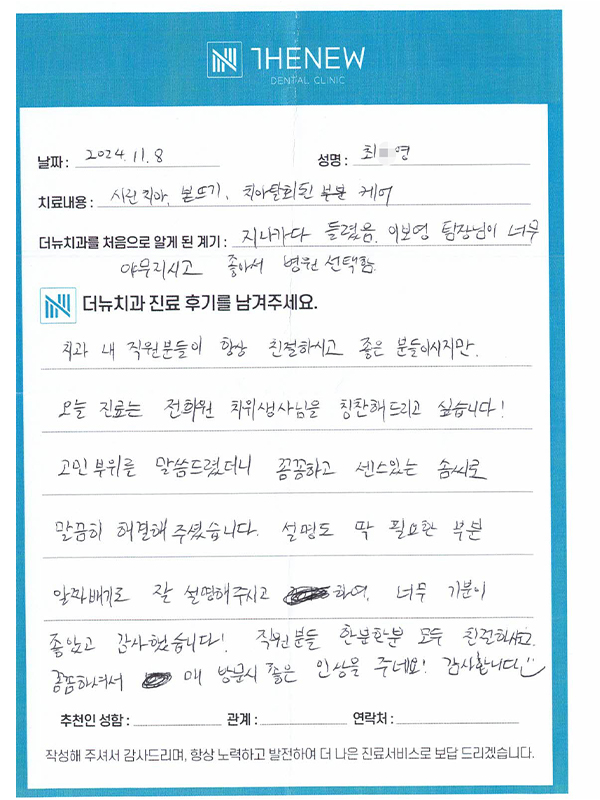 THENEW
DENTAL CLINIC
날짜 : 2024. 11. 8 성명 : 최 영
치료내용 : 시린치아, 본뜨기, 치아탈회된 부분 케어
더뉴치과를 처음으로 알게 된 계기 : 지나가다 들렸음. 이보영 팀장님이 너무
야무지시고 좋아서 병원 선택함.
더뉴치과 진료 후기를 남겨주세요.
치과 내 직원분들이 항상 친절하시고 좋은 분들이시지만,
오늘 진료는 전화원 치위생사님을 칭찬해드리고 싶습니다!
고민부위를 말씀드렸더니 꼼꼼하고 센스있는 솜씨로
말끔히 해결해주셨습니다. 설명도 딱 필요한 부분
알짜배기로 잘 설명해주시고 하여, 너무 기분이
좋았고 감사했습니다! 직원분들 한분한분 모두 친절하시고,
꼼꼼하셔서 매 방문시 좋은 인상을 주네요! 감사합니다
추천인 성함 : 관계 : 연락처 :
작성해 주셔서 감사드리며, 항상 노력하고 발전하여 더 나은 진료서비스로 보답 드리겠습니다.